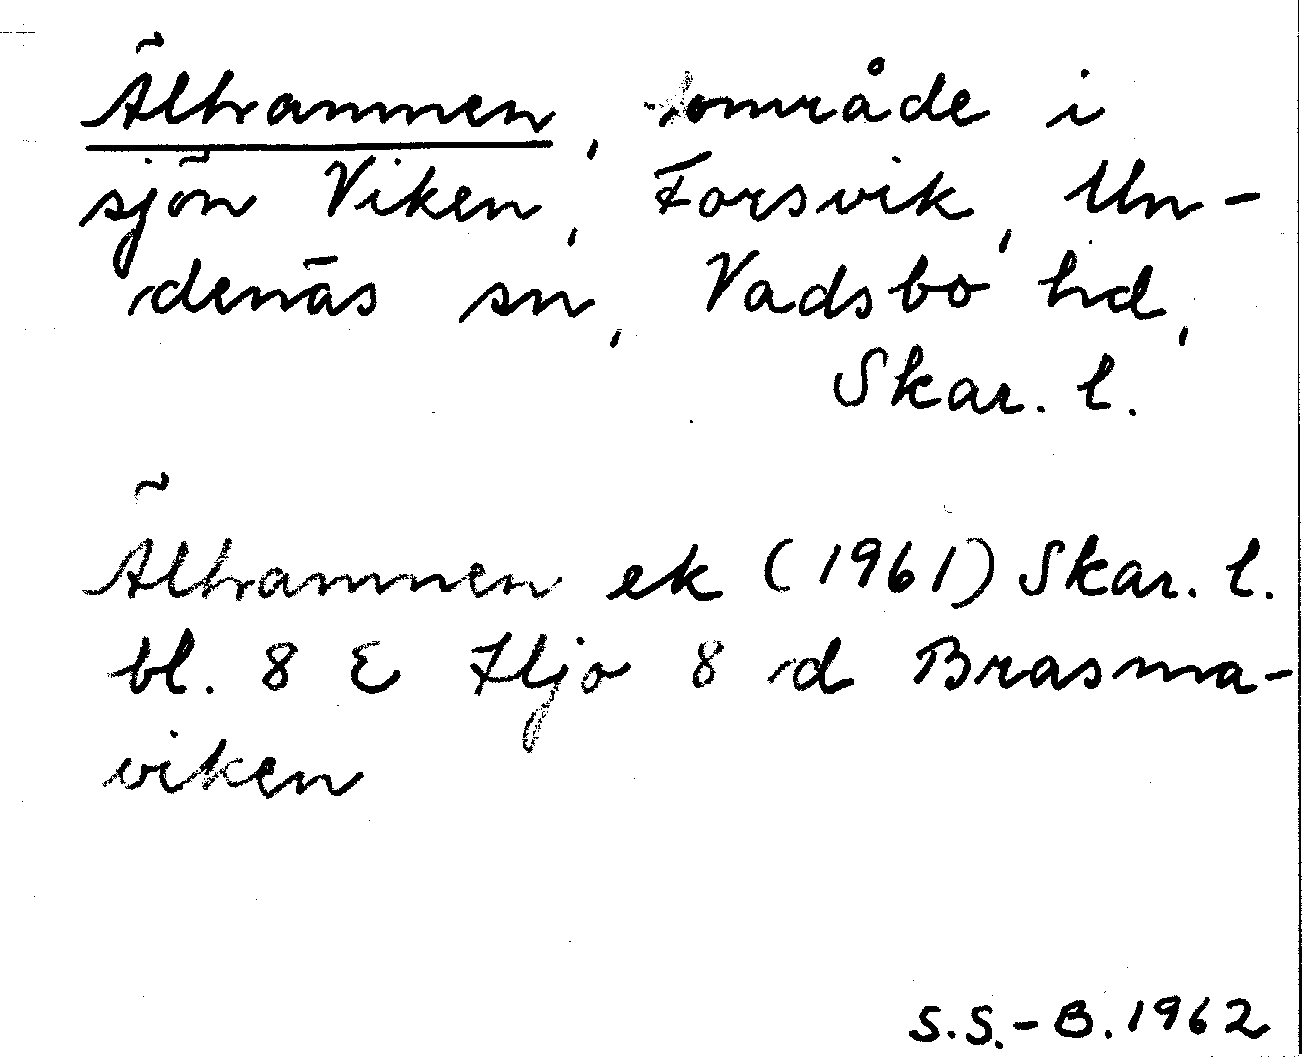 Älhamnen, område i
sjön Viken, Forsvik, Un-
denäs sn, Vadsbo hd,
Skar. l.
Älhamnen ek (1961) Skar. l.
bl. 8 E Hjo 8 d Brasma-
viken
S.S.-B. 1962